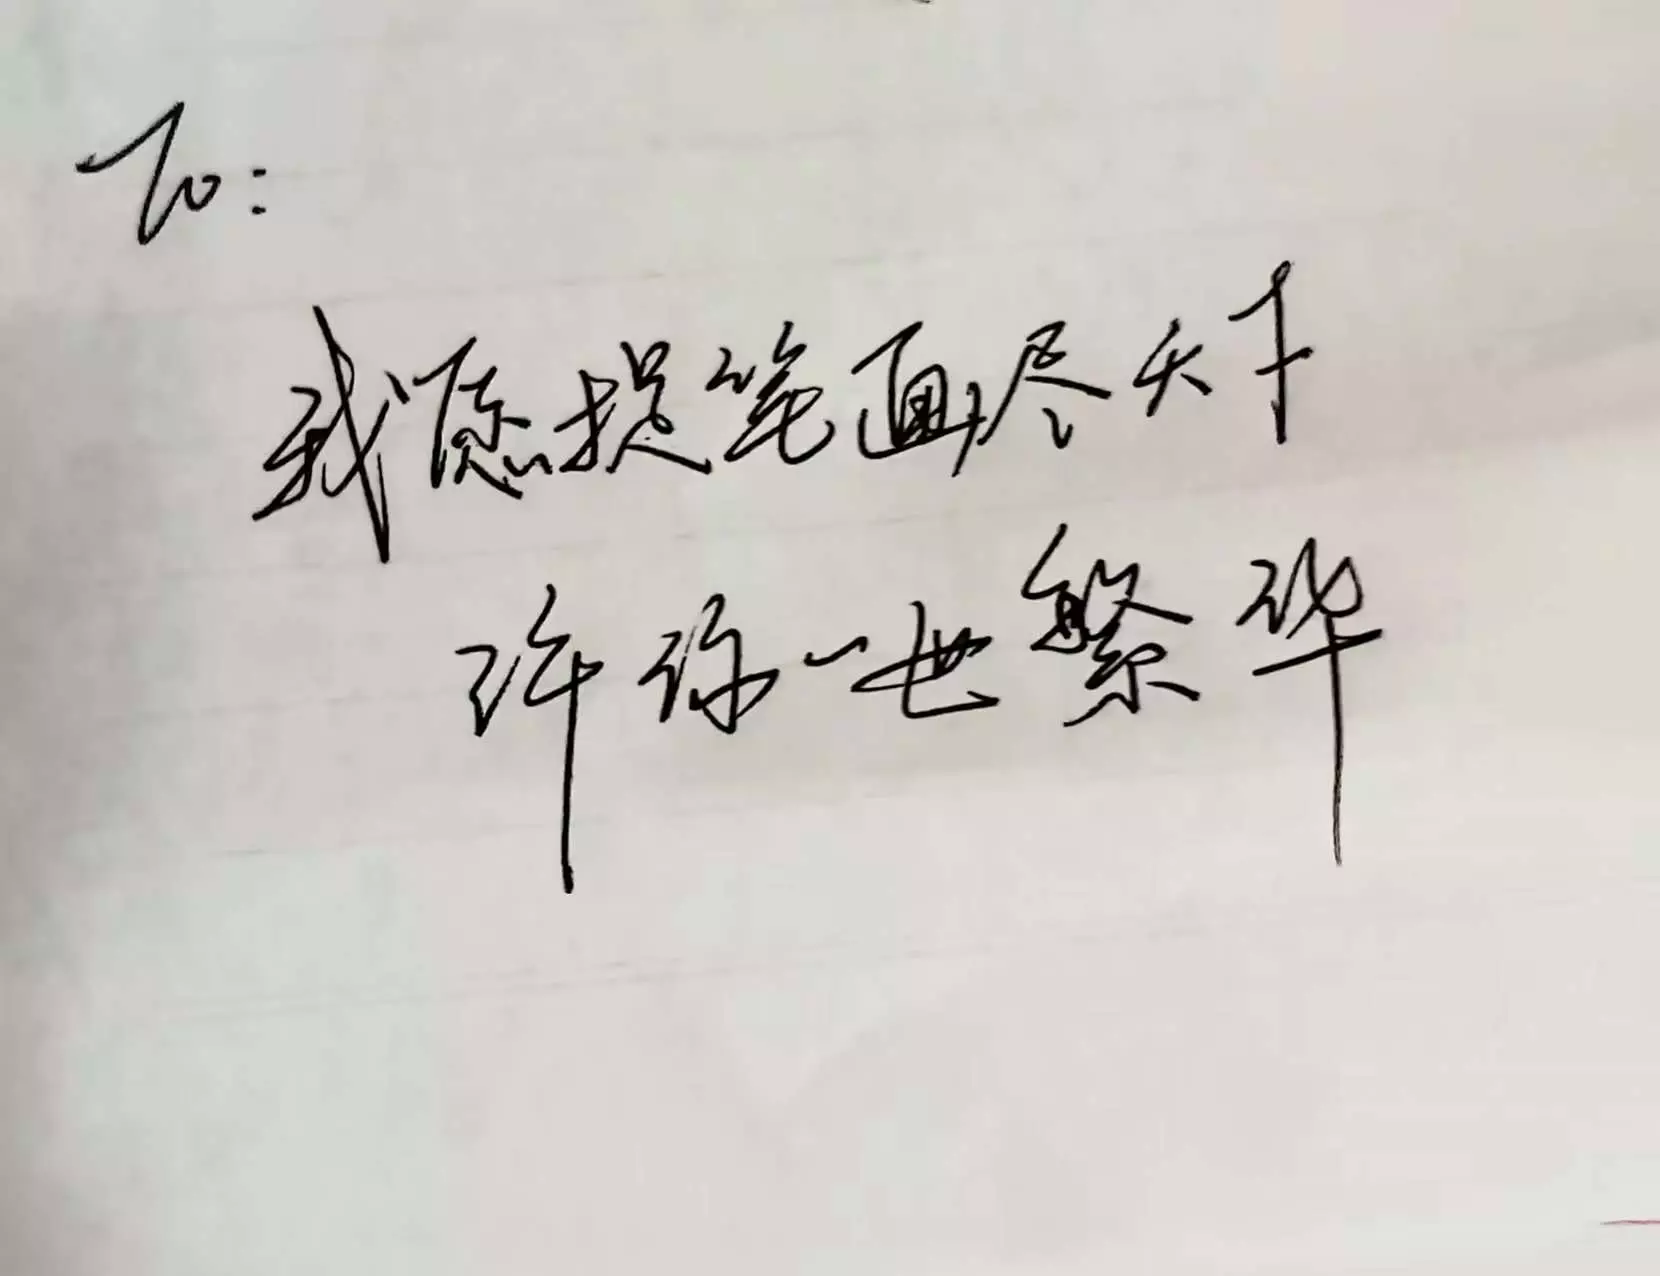 To:
我愿提笔画尽天下
许你一世繁华